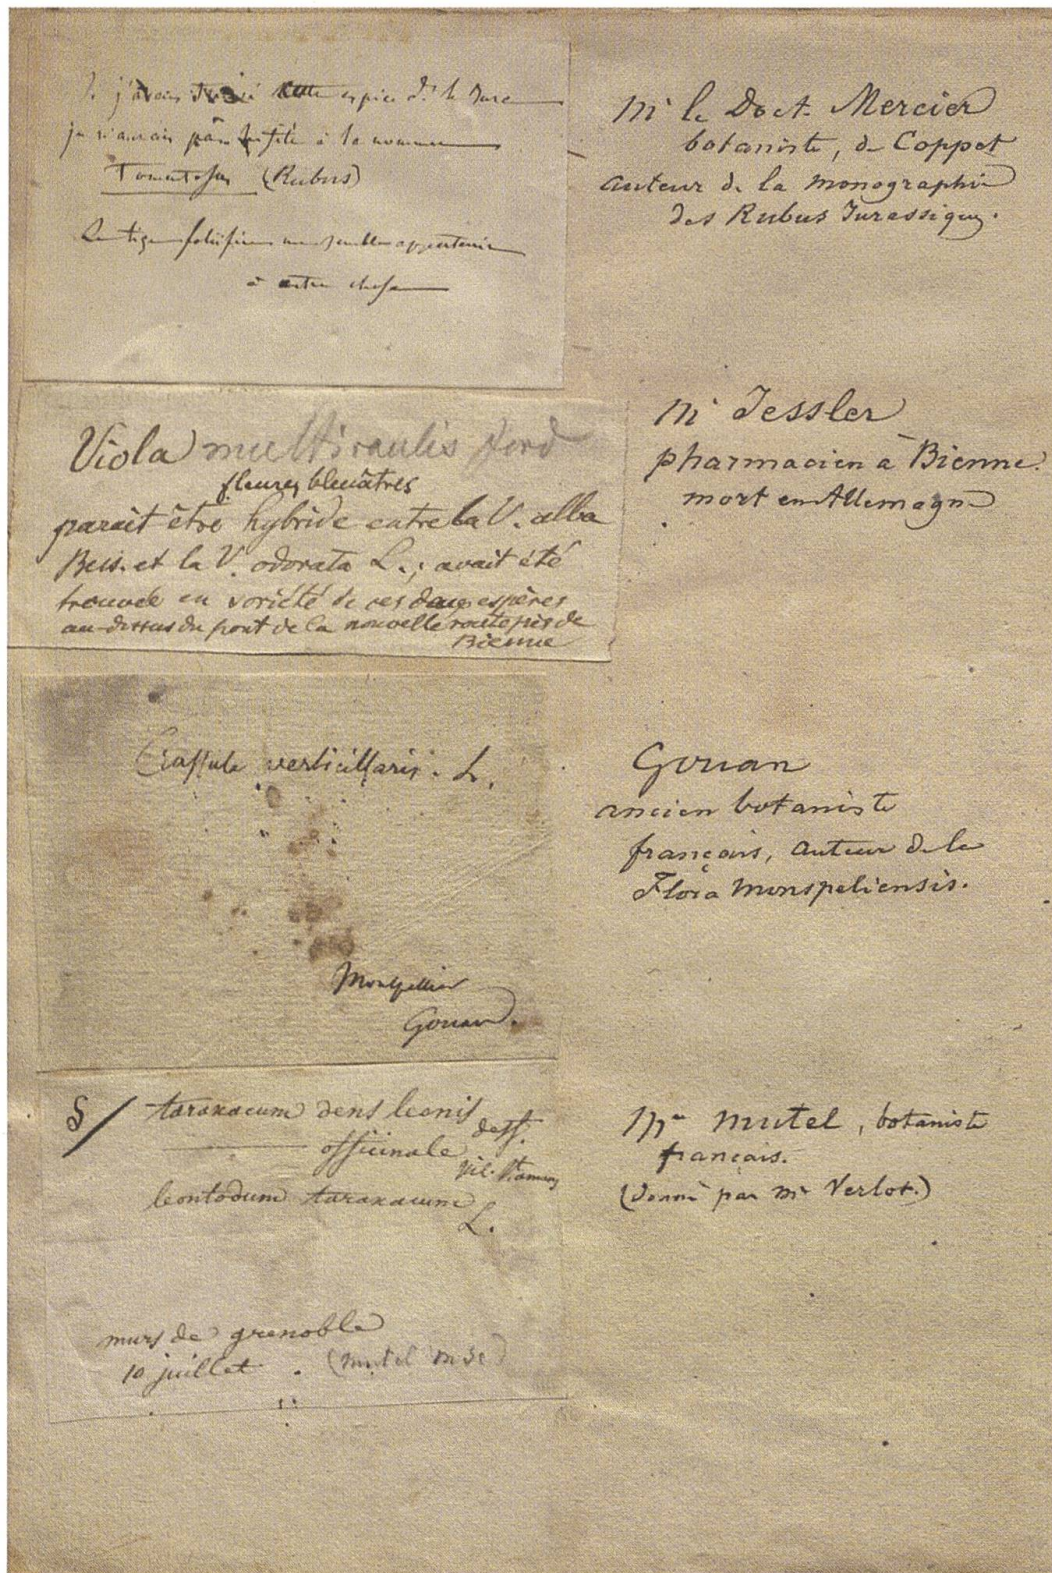 Si j'avais trouvé cette espèce ds le Jura
je n'aurais pas hésité à la nommer
Tomentosus (Rubus)
La tige me semble appartenir
à autre chose
Mr le Doct. Mercier
botaniste, de Coppet
auteur de la monographie
des Rubus Jurassiques.
Viola multicaulis Jord
fleures bleuâtres
parait être hybride entre la V. alba
Bess. et la V. odorata L.; avait été
trouvée en voriété de ces deux espères
au-dessus du pont de la nouvelle route près de
Bienne
Mr Tessler
pharmacien à Bienne.
mort en Allemagne
Crassula verticillaris. L.
Montpellier
Gouan.
Gouan
ancien botaniste
français, auteur de la
Flora Monspeliensis.
§/ taraxacum dens leonis desf.
officinale vil.
leontodum taraxacum
L.
murs de grenoble
10 juillet. (Mutel)
Mr Mutel, botaniste
français.
(donné par Mr Verlot.)